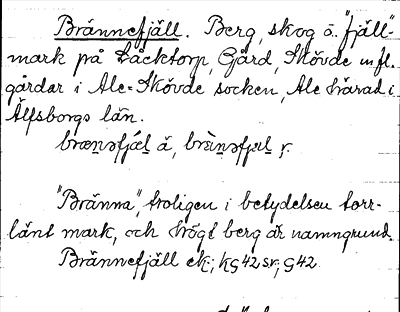 Brännefjäll. Berg, skog o. "fjäll"-
mark på Läcktorp, Gård, Skövde m fl.
gårdar i Ale=Skövde socken, Ale härad i
Älfsborgs län.
"Bränna", troligen i betydelsen torr-
länt mark, och högt berg är namngrund.
Brännefjäll ek; KG42